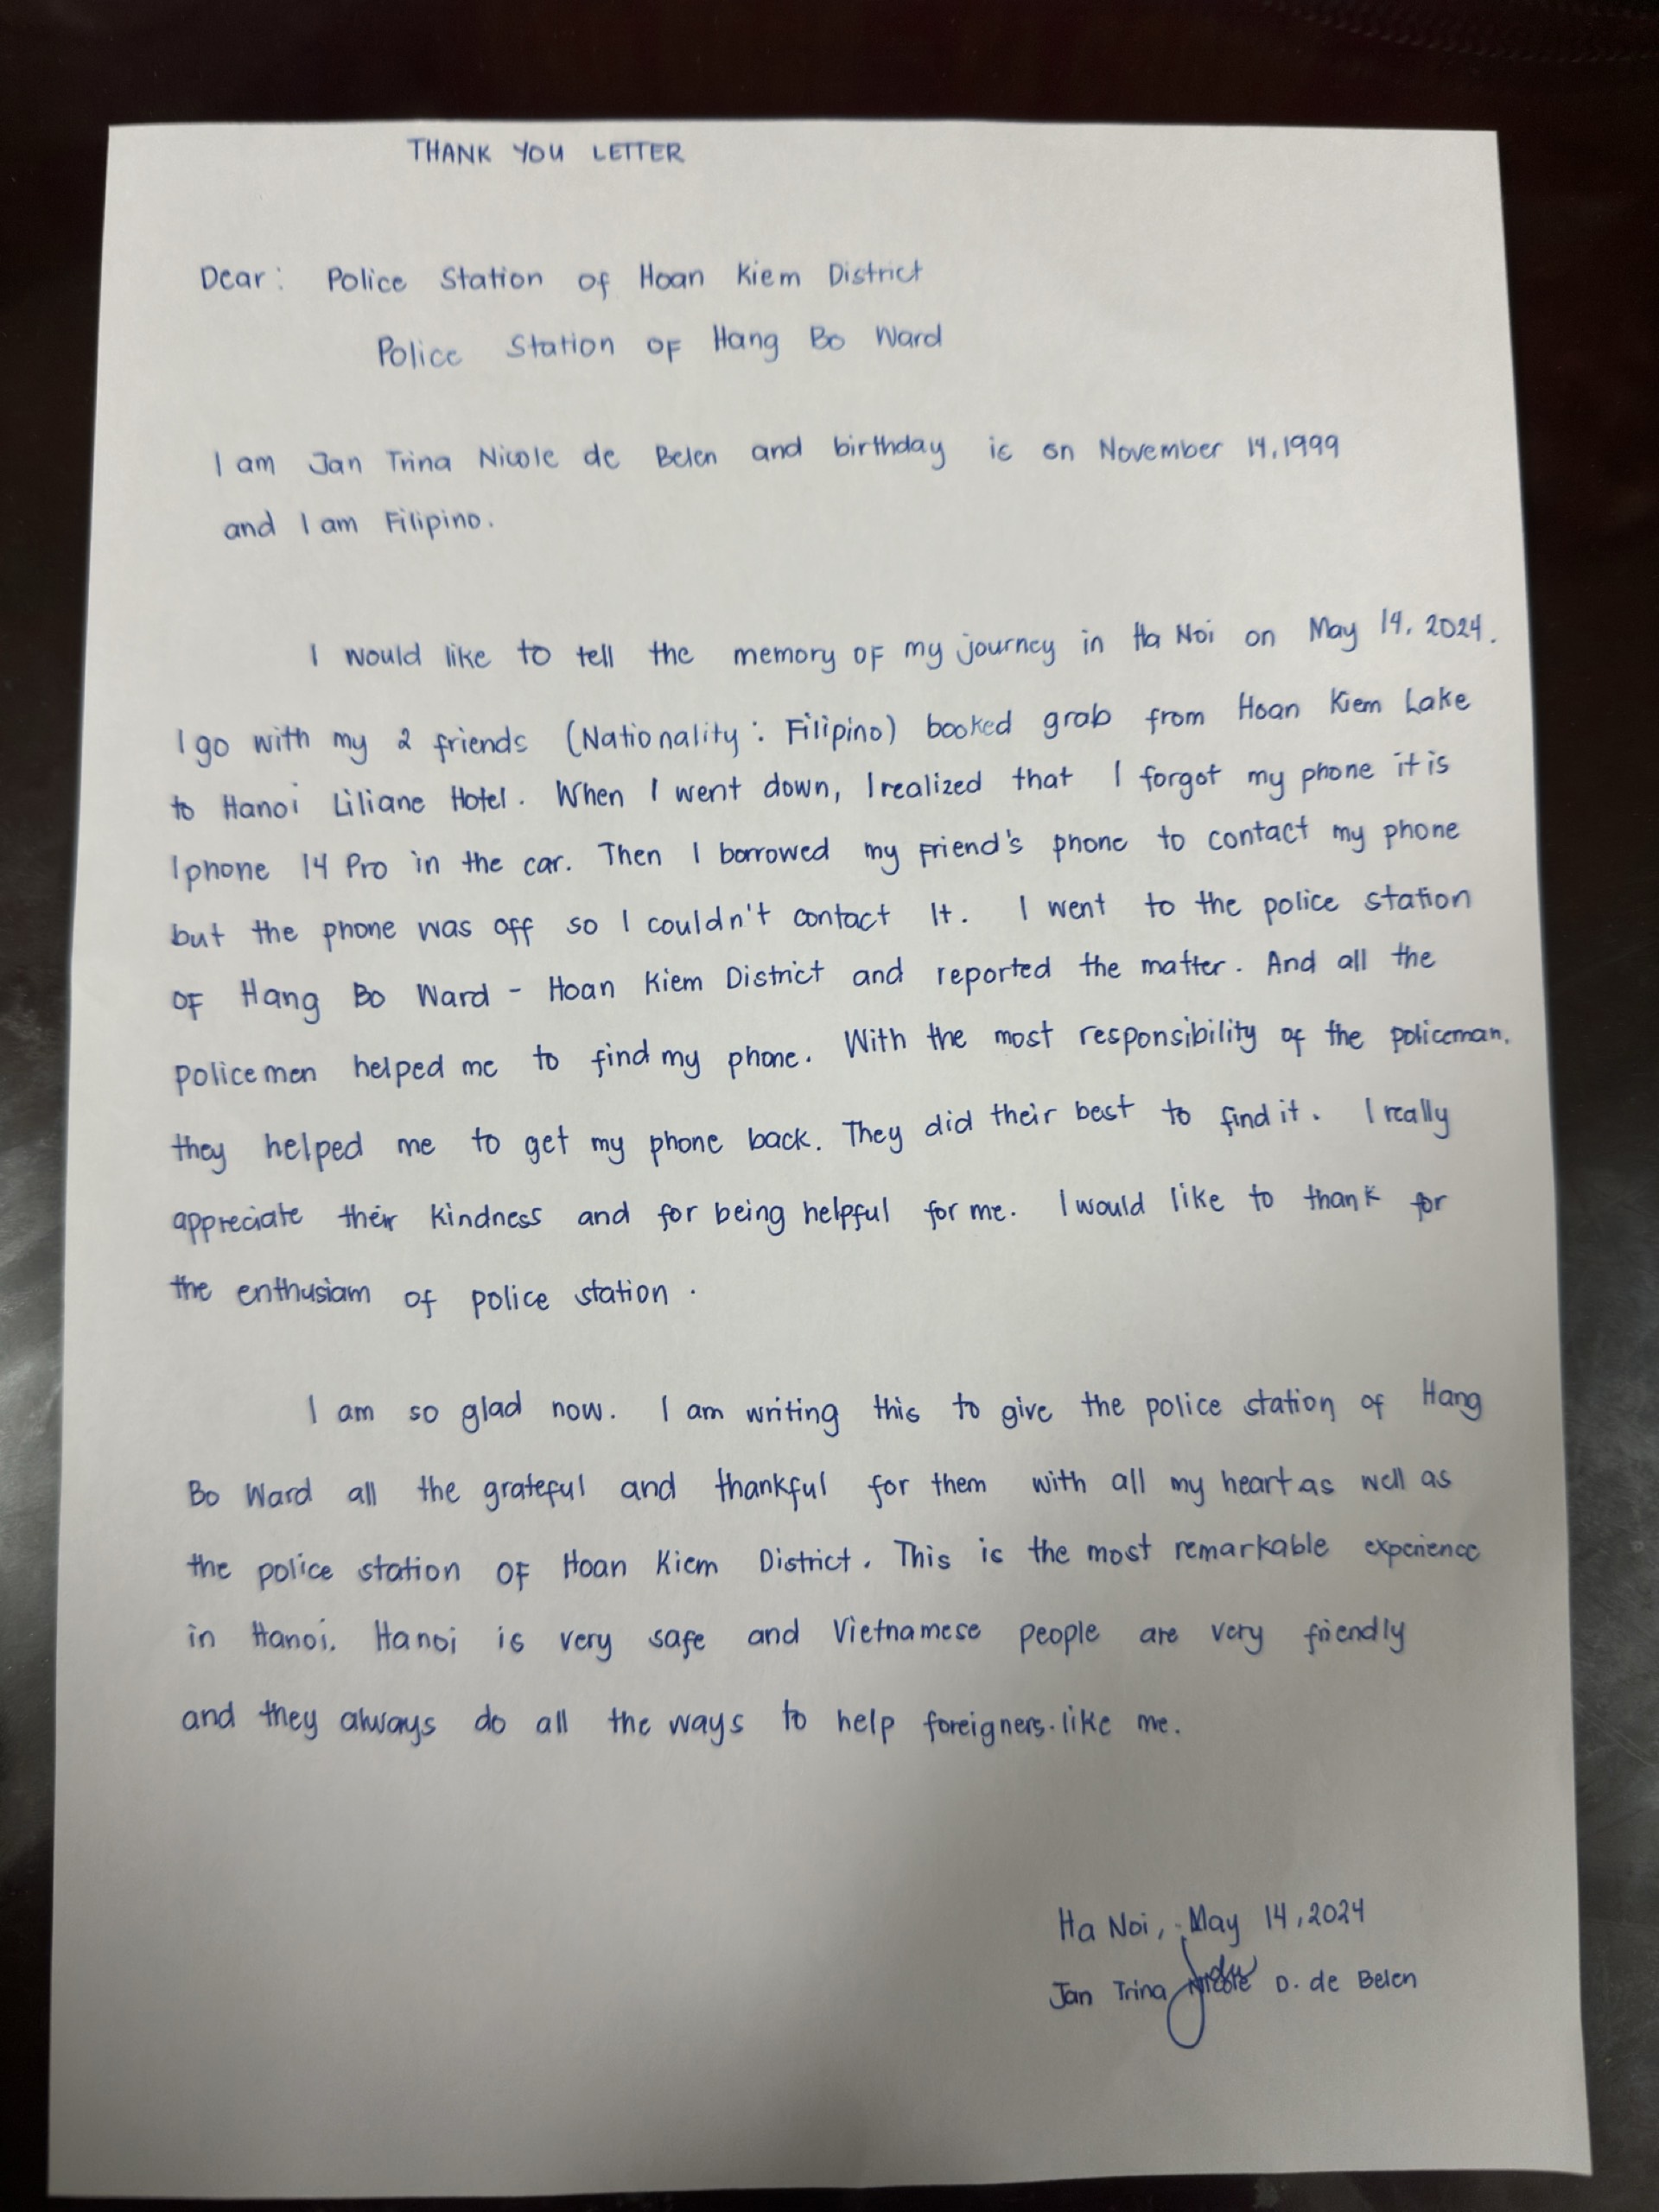 THANK YOU LETTER
Dear: Police Station of Hoan Kiem District
Police Station of Hang Bo Ward
I am Jan Trina Nicole de Belen and birthday is on November 14, 1999
and I am Filipino.
I would like to tell the memory of my journey in Ha Noi on May 14, 2024.
I go with my 2 friends (Nationality: Filipino) booked grab from Hoan Kiem Lake
to Hanoi Liliane Hotel. When I went down, I realized that I forgot my phone it is
Iphone 14 Pro in the car. Then I borrowed my friend's phone to contact my phone
but the phone was off so I couldn't contact It. I went to the police station
of Hang Bo Ward - Hoan Kiem District and reported the matter. And all the
policemen helped me to find my phone. With the most responsibility of the policeman,
they helped me to get my phone back. They did their best to find it. I really
appreciate their kindness and for being helpful for me. I would like to thank for
the enthusiam of police station.
I am so glad now. I am writing this to give the police station of Hang
Bo Ward all the grateful and thankful for them with all my heart as well as
the police station of Hoan Kiem District. This is the most remarkable experience
in Hanoi. Hanoi is very safe and Vietnamese people are very friendly
and they always do all the ways to help foreigners like me.
Ha Noi, May 14, 2024
Jan Trina Nicole D. de Belen